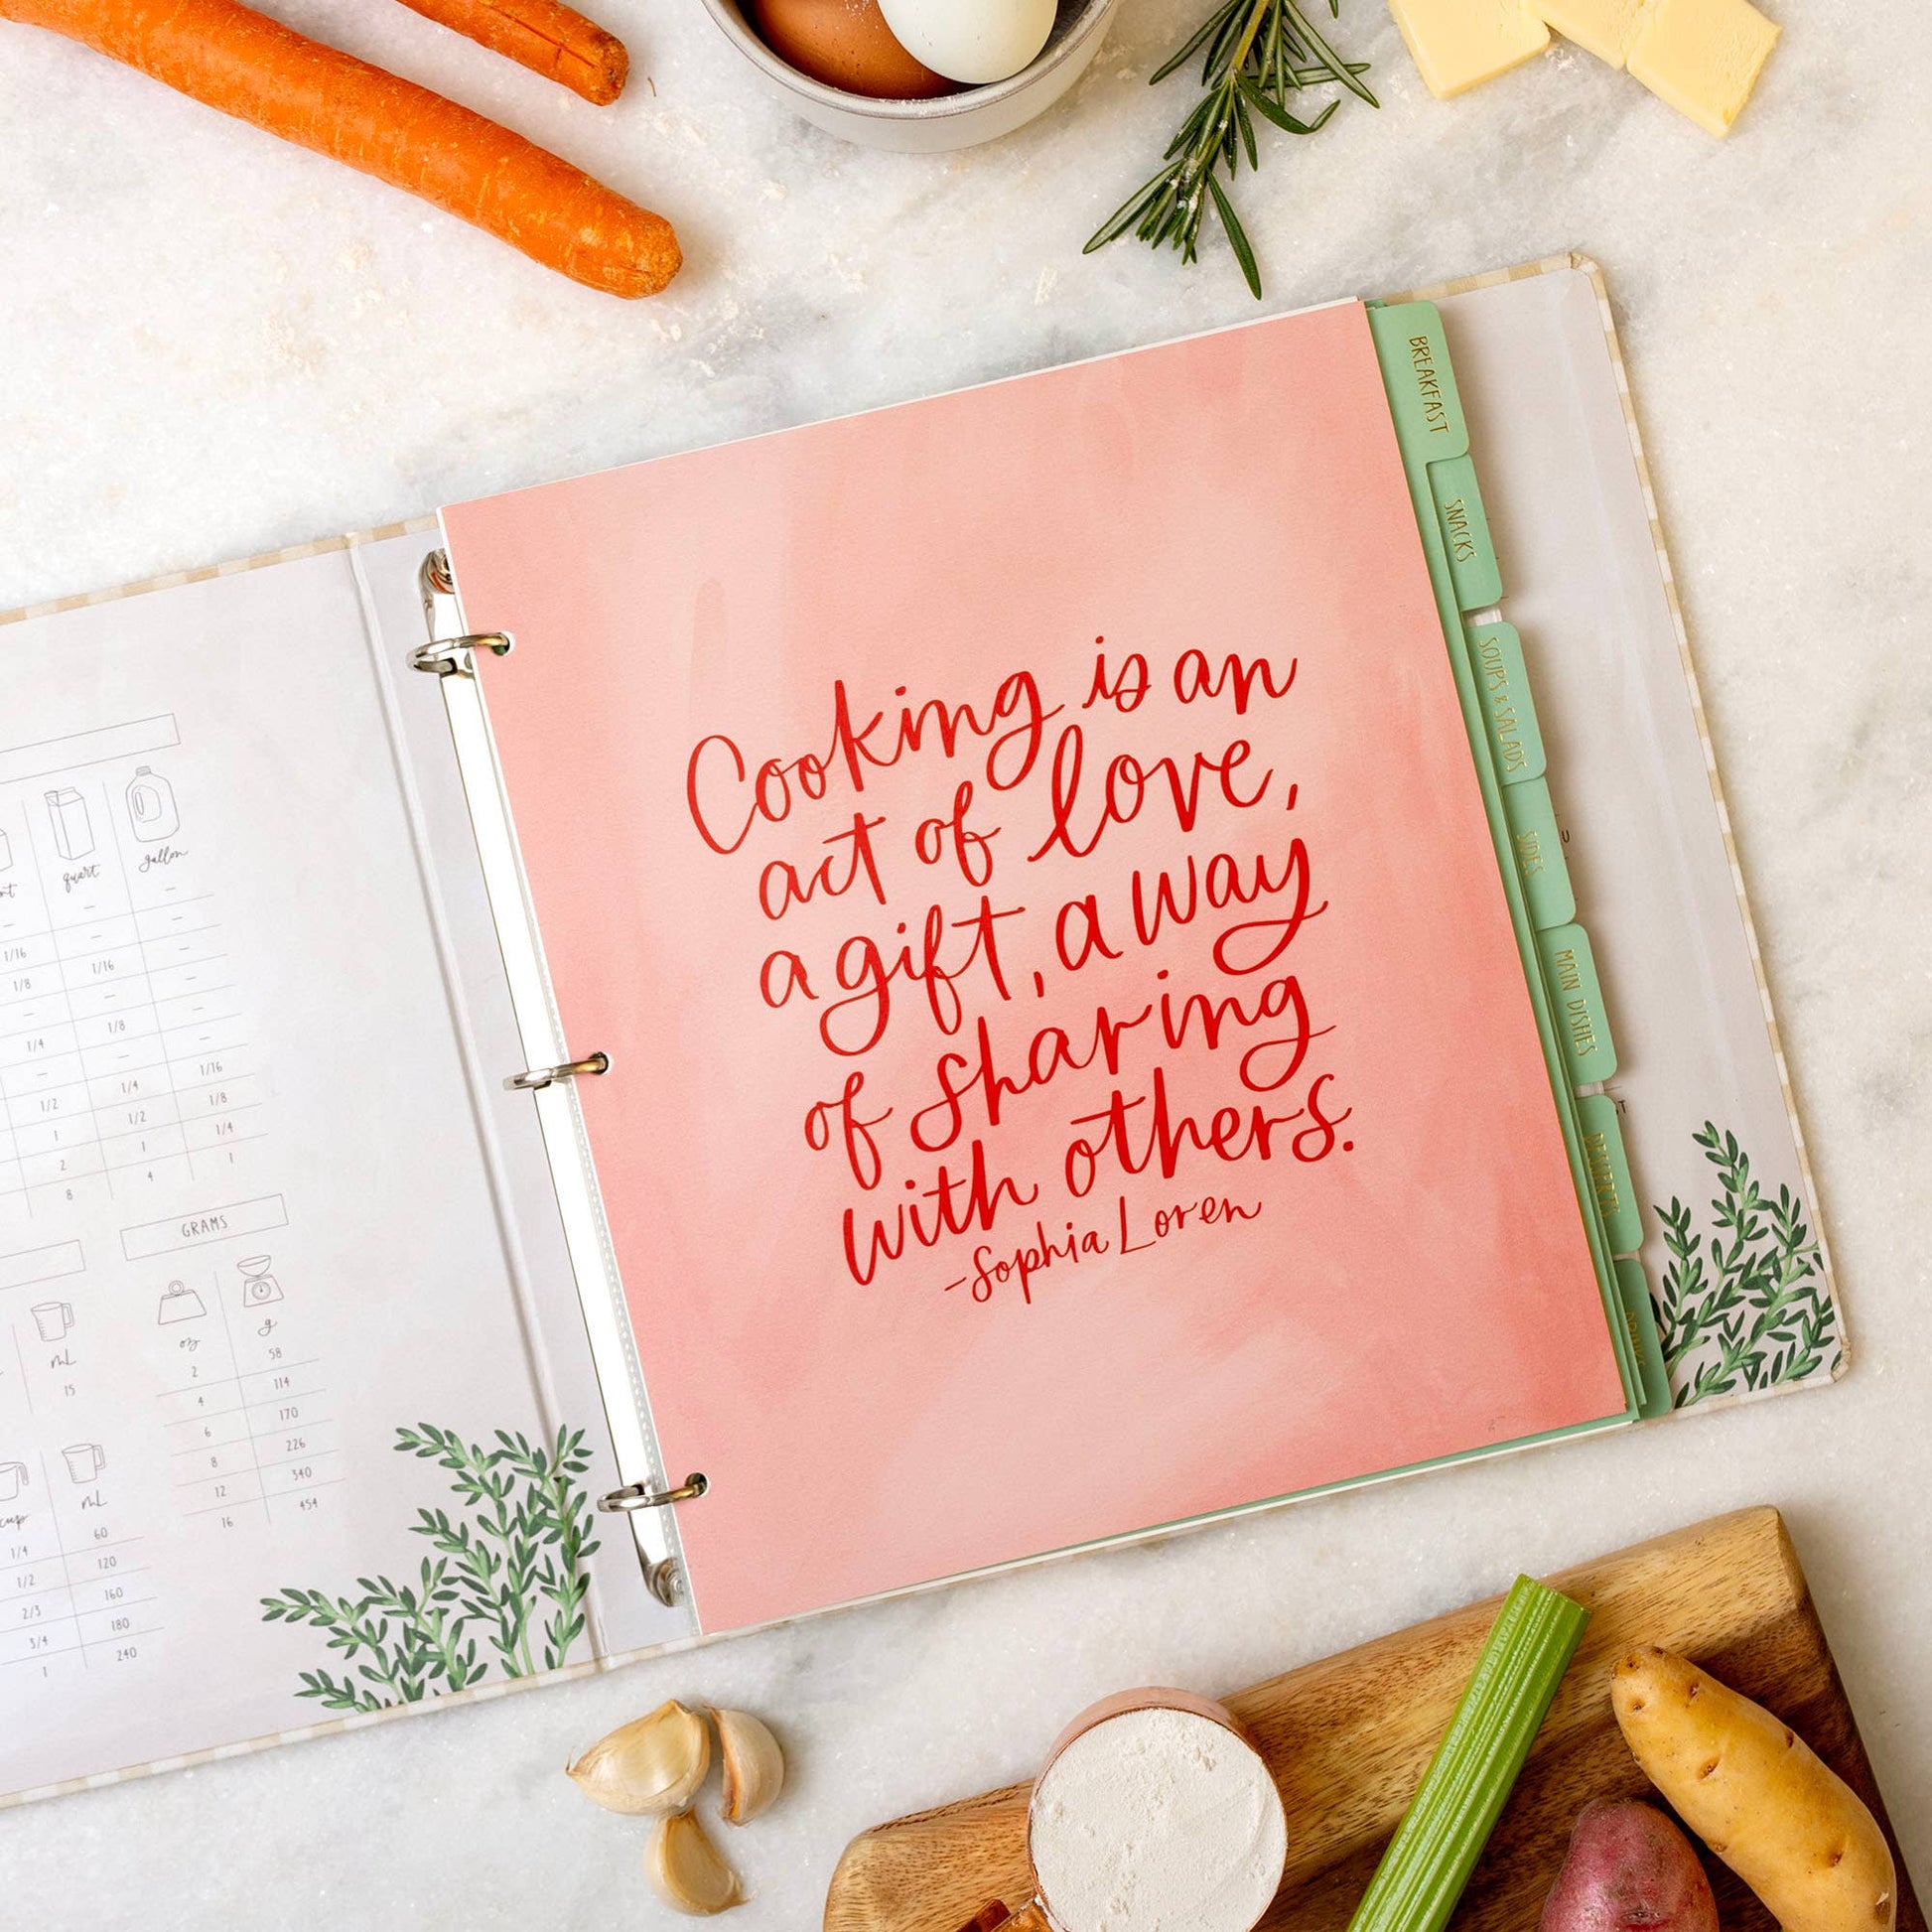 Cooking is an
act of love,
a gift, a way
of sharing
with others.
-Sophia Loren
BREAKFAST
SNACKS
SOUPS & SALADS
SIDES
MAIN DISHES
DESSERTS
DRINKS
quart gallon
– –
1/16 – –
1/8 1/16 –
– – –
1/4 1/8 –
– – –
1/2 1/4 1/16
1 1/2 1/8
2 1 1/4
8 4 1
GRAMS
oz g
2 58
4 114
6 170
8 226
12 340
16 454
mL
15
cup mL
1/4 60
1/2 120
2/3 160
3/4 180
1 240